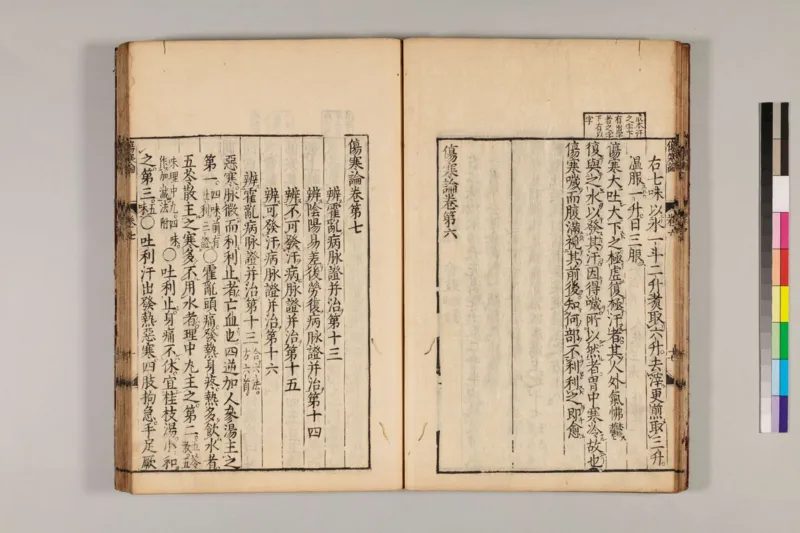 右七味以水一斗二升煮取六升去滓更煎取三升
温服一升日三服
傷寒大吐大下之極虚復極汗者其人外氣怫鬱
復與之水以發其汗因得噦所以然者胃中寒冷故也
傷寒噦而腹滿視其前後知何部不利利之即愈
傷寒論卷第六
傷寒論卷第七
辨霍亂病脉證并治第十三
辨陰陽易差後勞復病脉證并治第十四
辨不可發汗病脉證并治第十五
辨可發汗病脉證并治第十六
辨霍亂病脉證并治第十三 合六法方六首
惡寒脉微而利利止者亡血也四逆加人參湯主之
第一 四味前有吐利三證 ○霍亂頭痛發熱身疼熱多飲水者
五苓散主之寒多不用水者理中丸主之第二
味理中丸四味作加減法附 ○吐利止身痛不休宜桂枝湯小和
之第三 五味 ○吐利汗出發熱惡寒四肢拘急手足厥